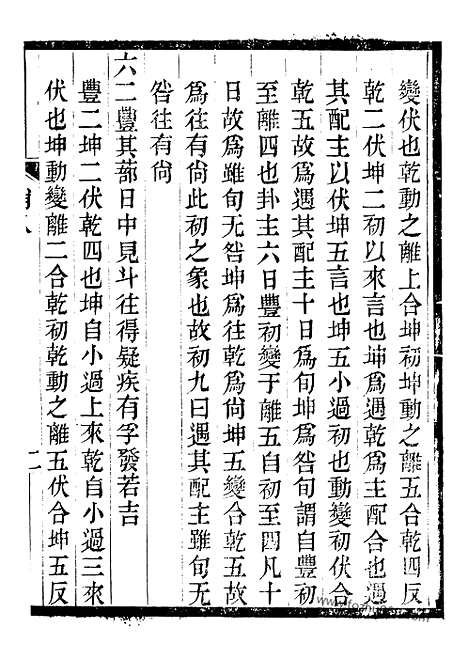 變伏也乾動之離上合坤初坤動之離五合乾四反
乾二伏坤二初以來言也坤爲遇乾爲主配合也遇
其配主以伏坤五言也坤五小過初也動變初伏合
乾五故爲遇其配主十日爲旬坤爲咎旬謂自豐初
至離四也卦主六日豐初變于離五自初至四凡十
日故爲雖旬无咎坤爲往乾爲尙坤五變合乾五故
爲往有尙此初之象也故初九曰遇其配主雖旬无
咎往有尙
六二豐其蔀日中見斗往得疑疾有孚發若吉
豐二坤二伏乾四也坤自小過上來乾自小過三來
伏也坤動變離二合乾初乾動之離五伏合坤五反
二